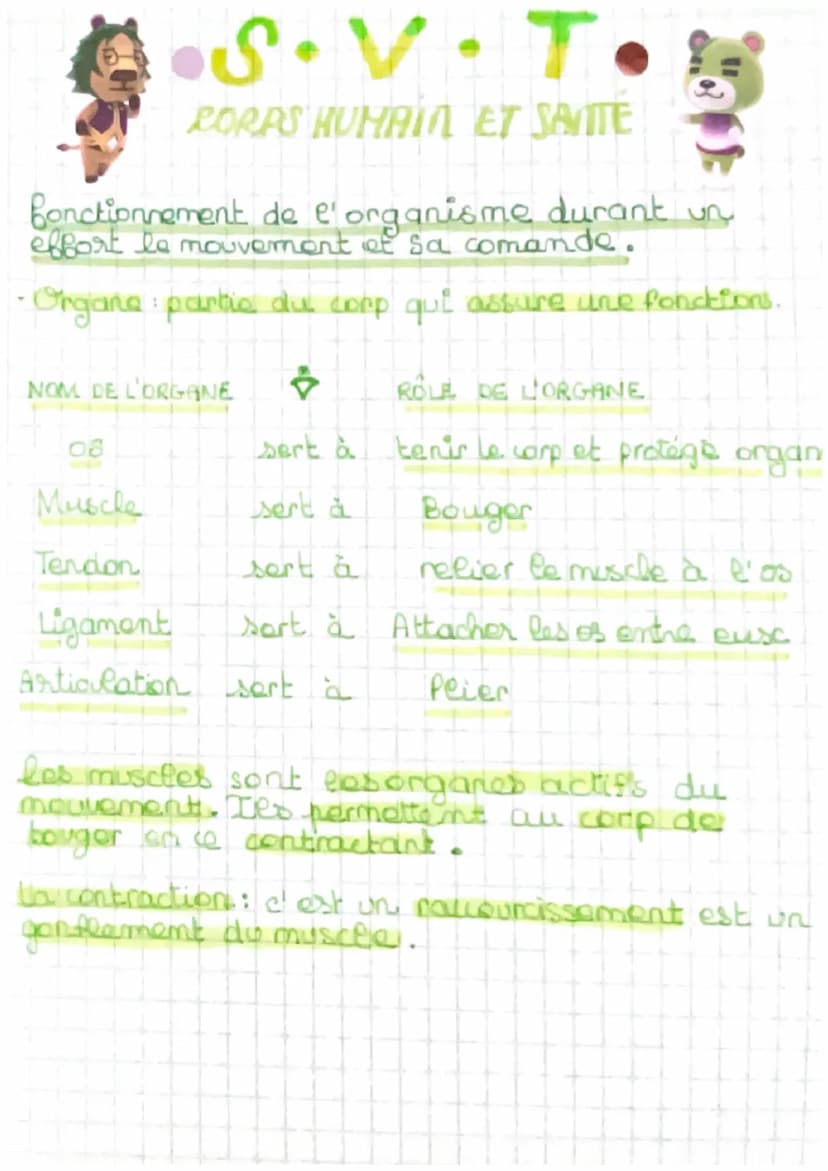 S.V.T
CORPS HUMAIN ET SANTÉ
fonctionnement de l'organisme durant un
effort le mouvement et sa comande.
- Organe : partie du corp qui assure une fonctions.
NOM DE L'ORGANE RÔLE DE L'ORGANE
os sert à tenir le corp et protégé organ
Muscle sert à Bouger
Tendon sert à relier le muscle à l'os
Ligament sert à Attacher les os entre eusc
Articulation sert à Plier
les muscles sont les organes actifs du
mouvement. Ils permettent au corp de
bouger en ce contractant.
La contraction : c'est un raccourcissement est un
gonflement du muscle.